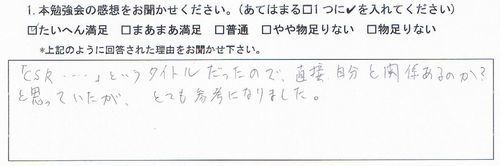 1. 本勉強会の感想をお聞かせください。(あてはまる□1つに✔を入れてください)
☑たいへん満足 □まあまあ満足 □普通 □やや物足りない □物足りない
*上記のように回答された理由をお聞かせ下さい。
「CSR ‥‥」というタイトルだったので、直接 自分と関係あるのか?
と思っていたが、とても参考になりました。